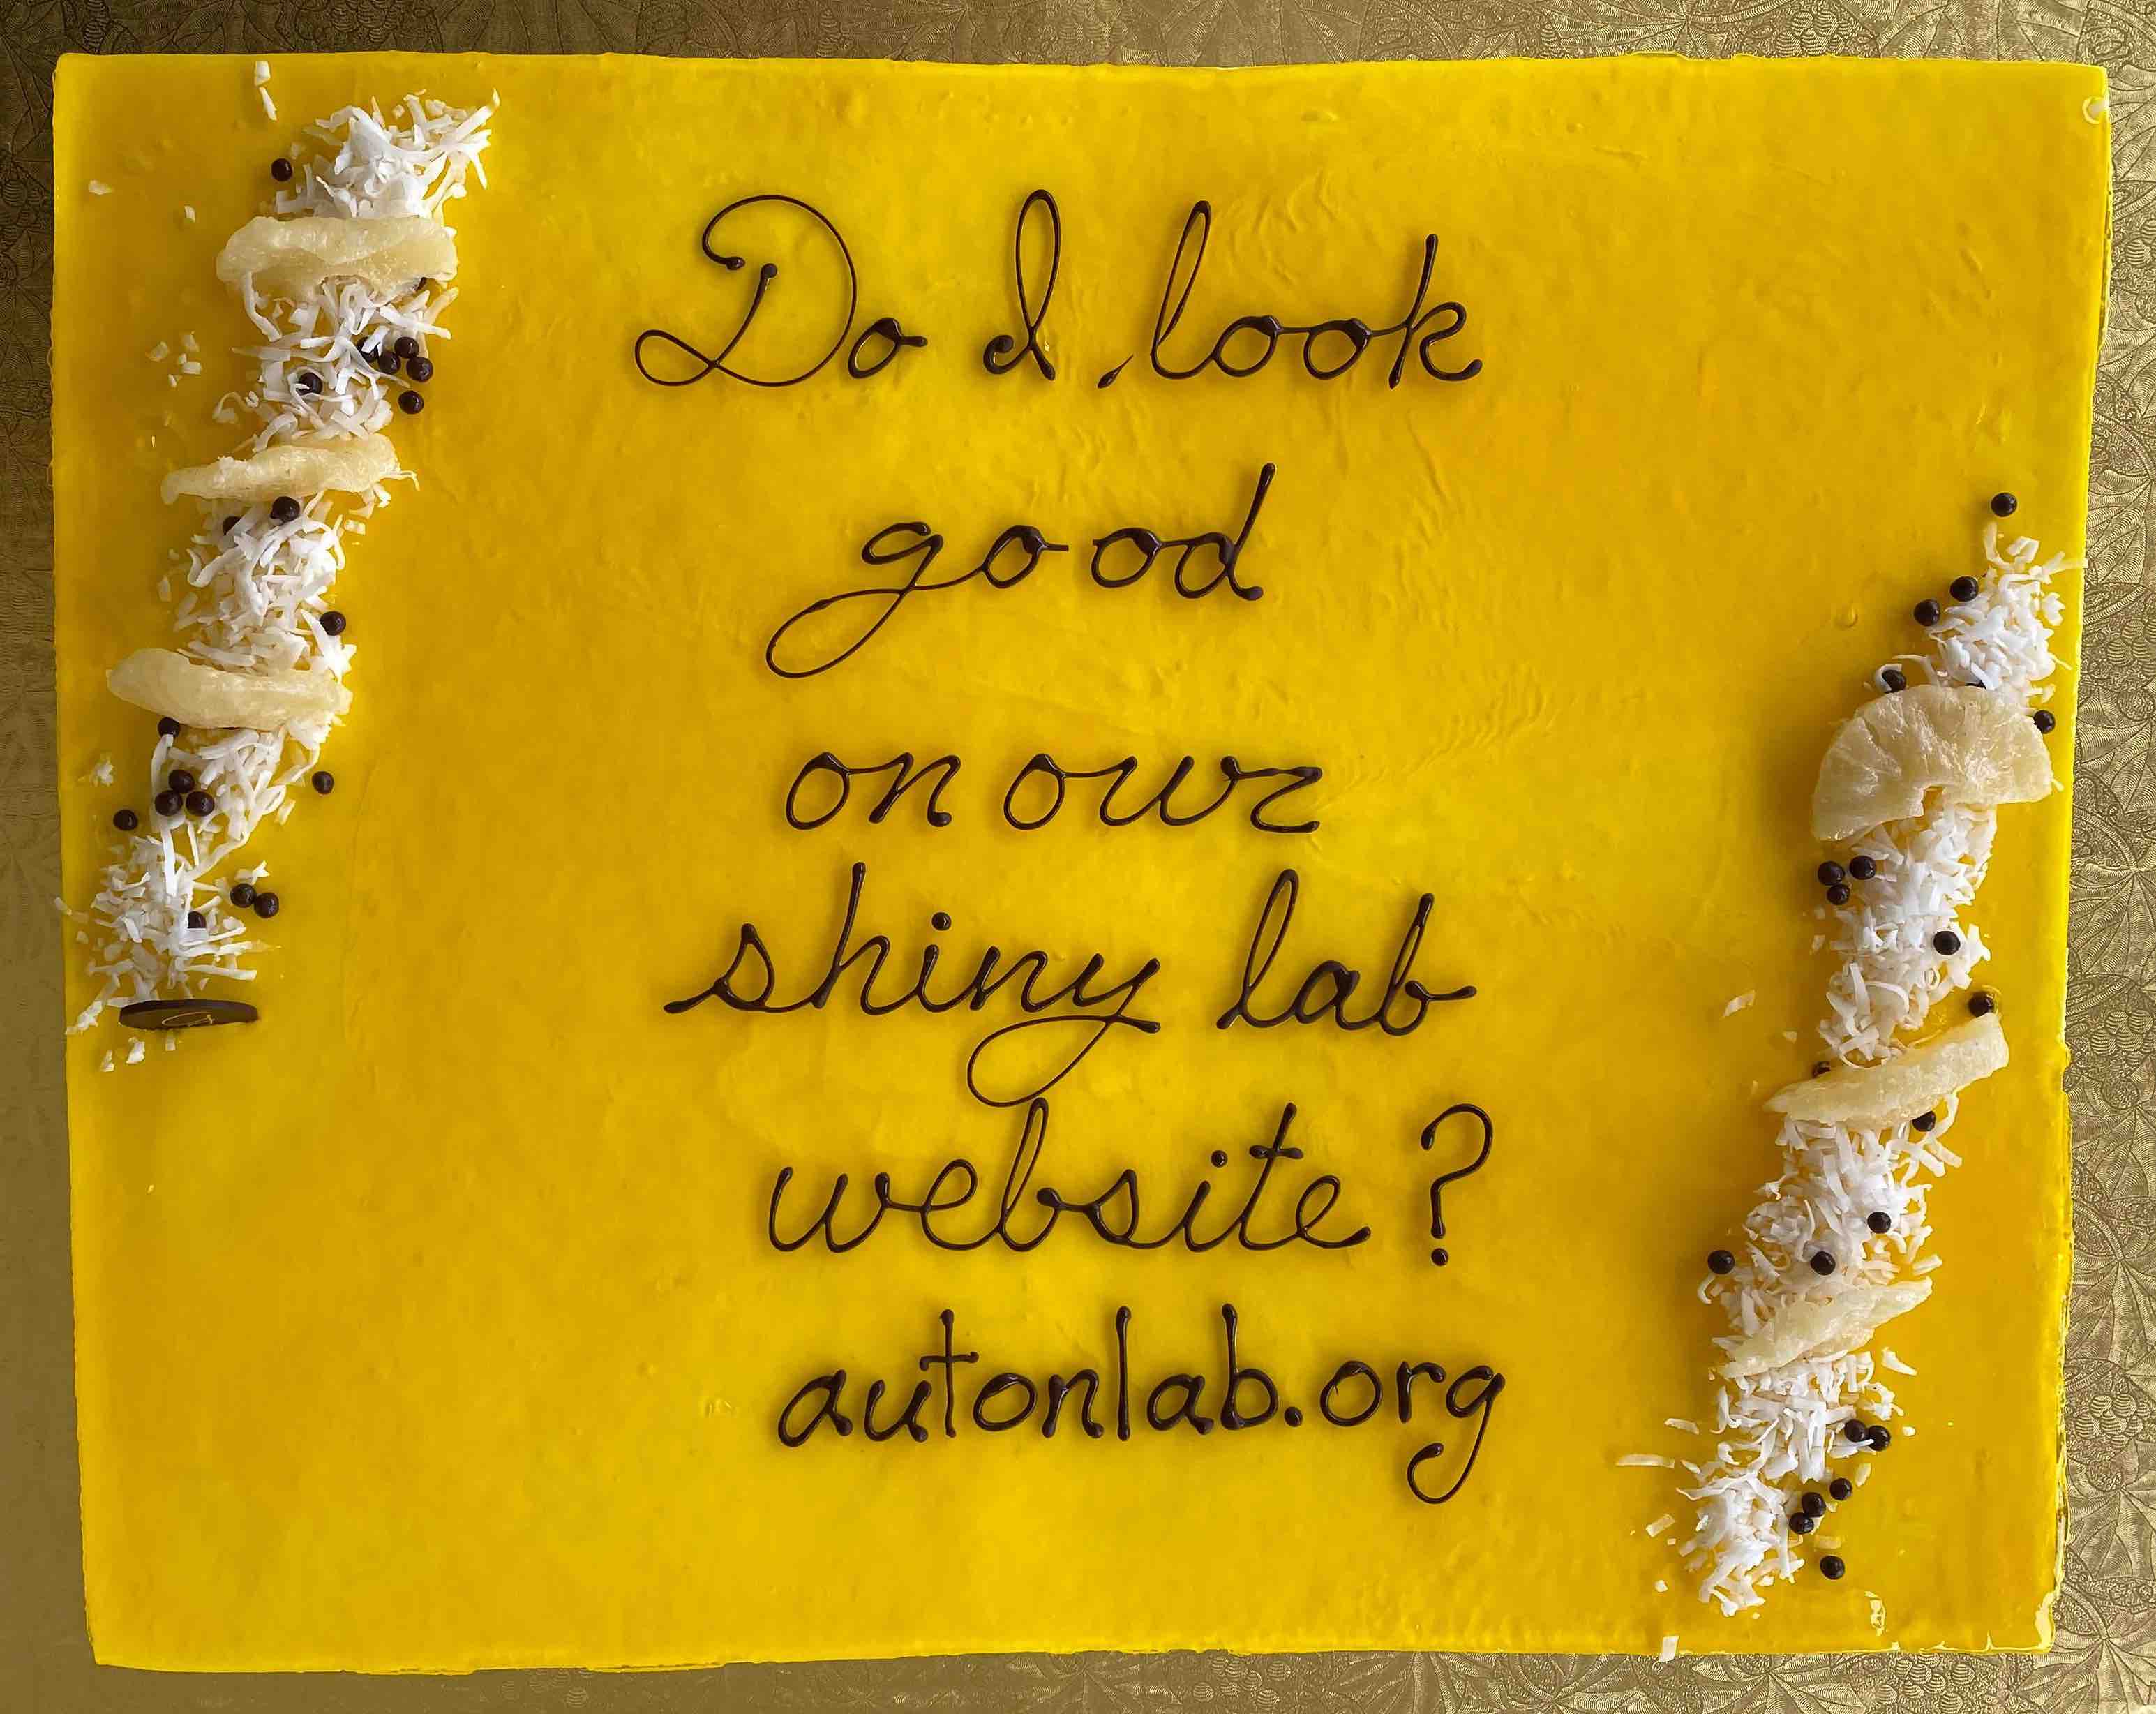 Do I look
good
on our
shiny lab
website?
autonlab.org